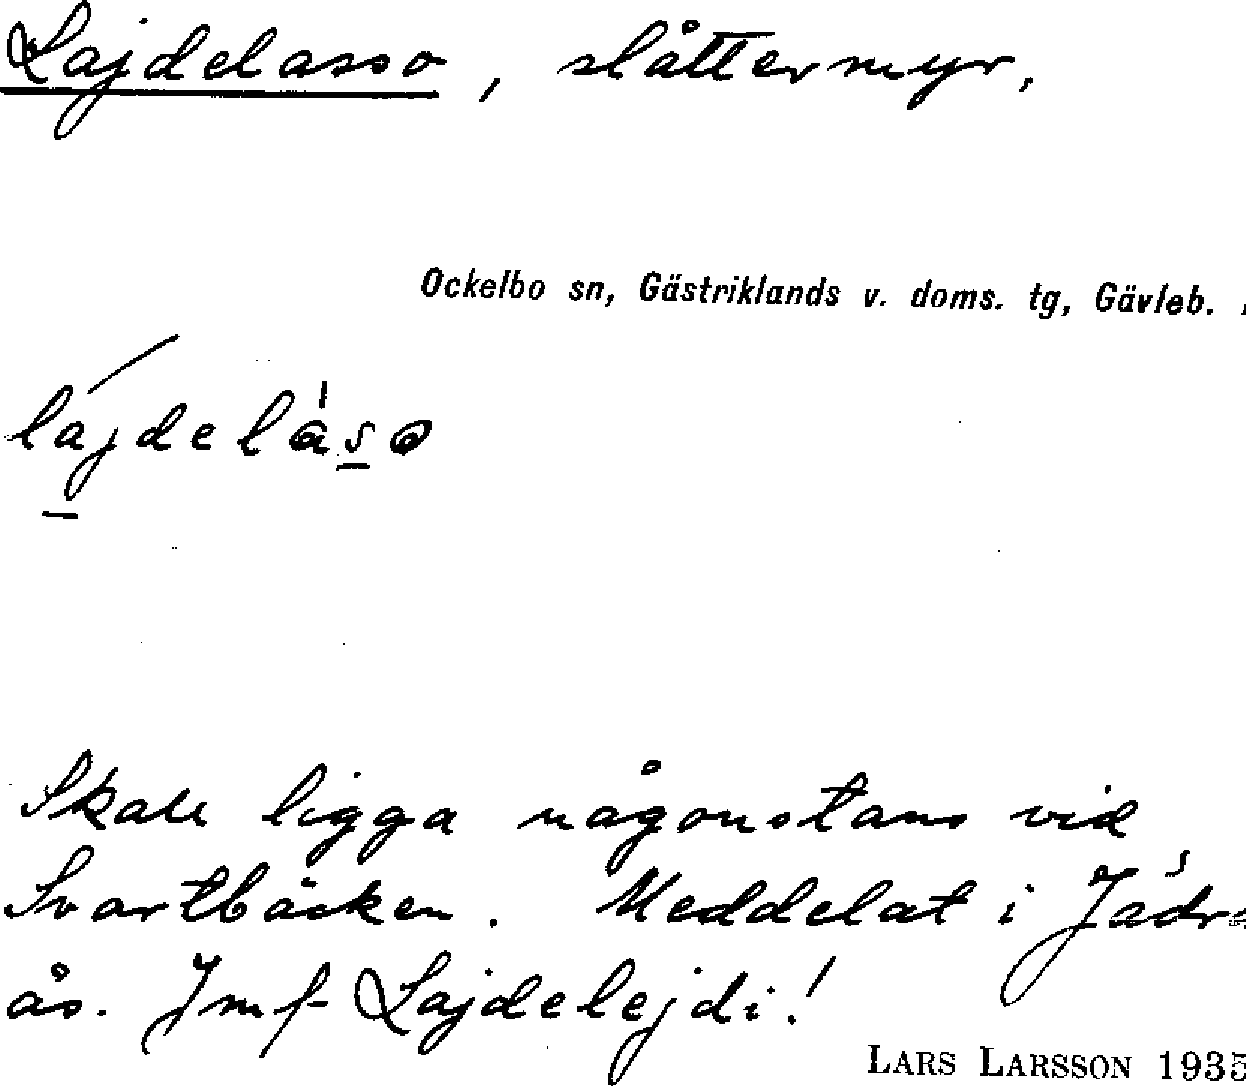 Lajdelasso, slåttermyr,
Ockelbo sn, Gästriklands v. doms. tg, Gävleb.
lajdelàso
Skall ligga någonstans vid
Svartbäcken. Meddelat i Jädr-
ås. Jmf Lajdelejdi!
LARS LARSSON 1935